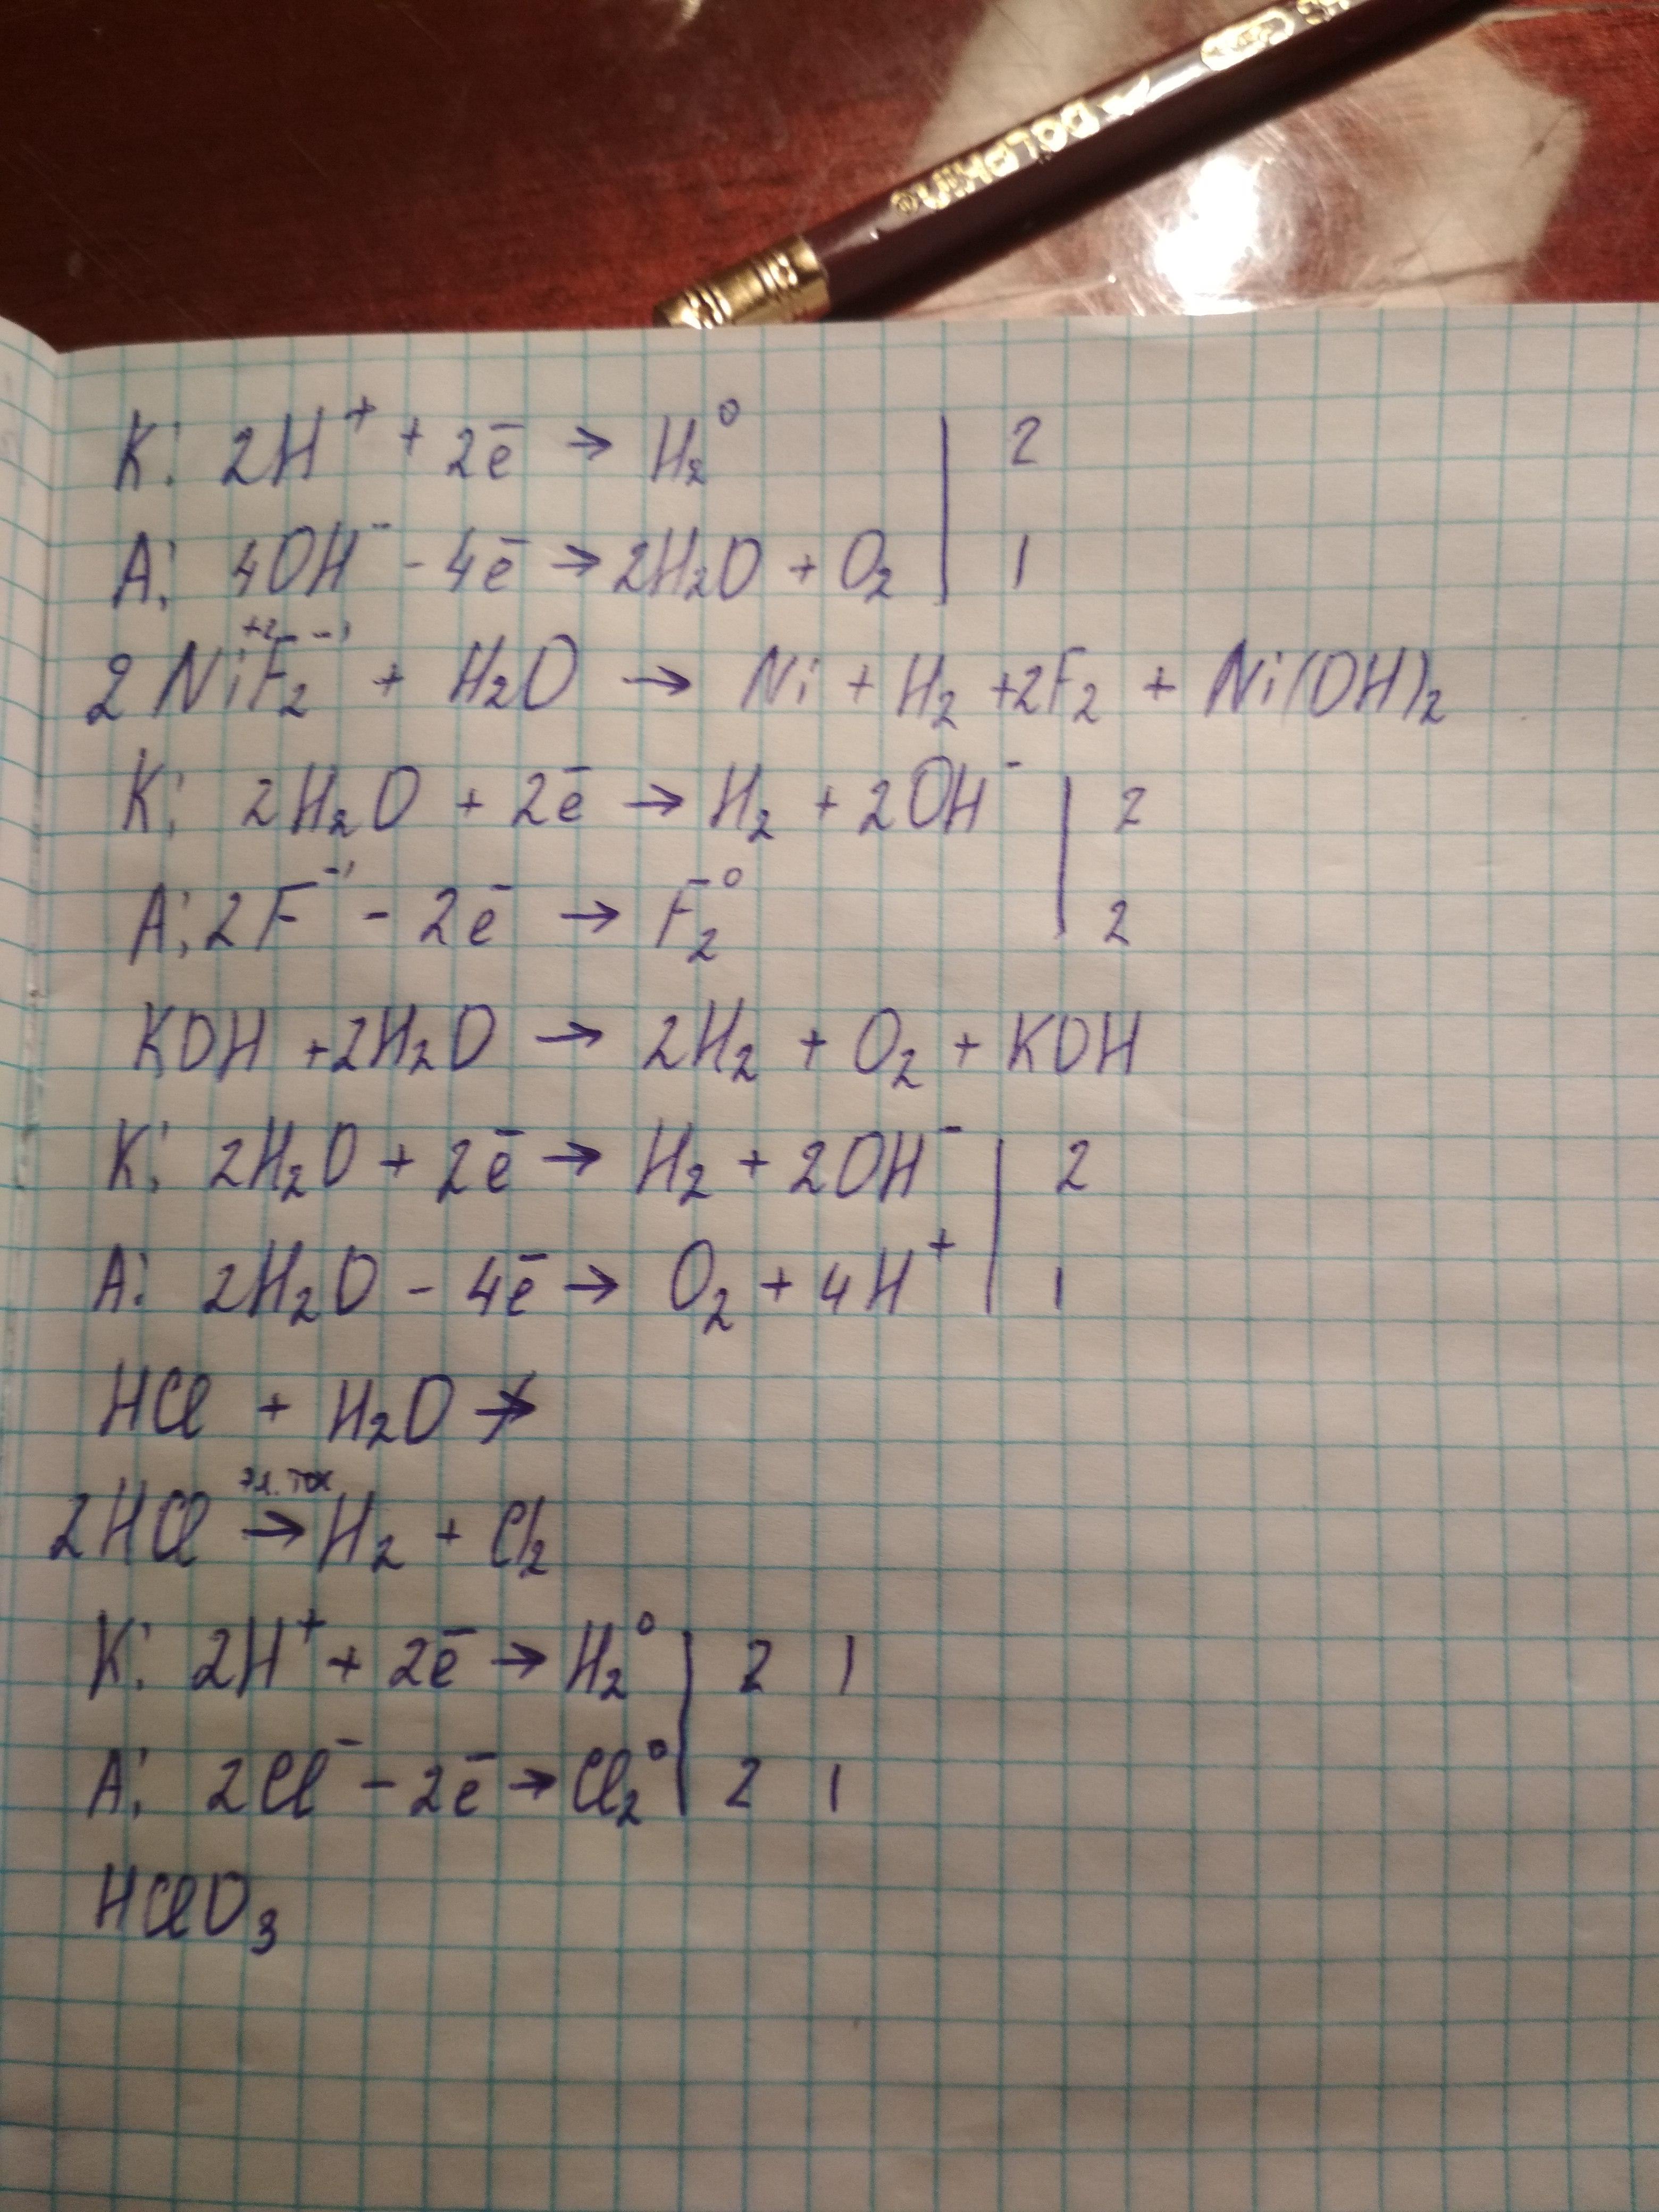 DOLPHIN®
К: 2H⁺ + 2ē → H₂⁰ | 2
А: 4OH⁻ - 4ē → 2H₂O + O₂ | 1
2Ni⁺²F₂⁻¹ + H₂O → Ni + H₂ + 2F₂ + Ni(OH)₂
К: 2H₂O + 2ē → H₂ + 2OH⁻ | 2
А: 2F⁻¹ - 2ē → F₂⁰ | 2
KOH + 2H₂O → 2H₂ + O₂ + KOH
К: 2H₂O + 2ē → H₂ + 2OH⁻ | 2
А: 2H₂O - 4ē → O₂ + 4H⁺ | 1
HCl + H₂O ↛
2HCl эл. ток → H₂ + Cl₂
К: 2H⁺ + 2ē → H₂⁰ | 2 1
А: 2Cl⁻ - 2ē → Cl₂⁰ | 2 1
HClO₃